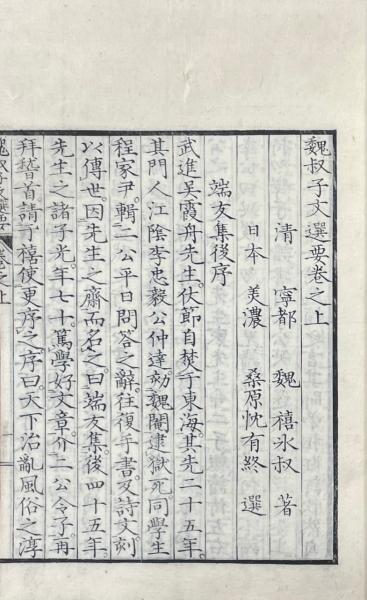 魏叔子文選要卷之上
清 寧都 魏禧冰叔 著
日本 美濃 桑原忱有終 選
端友集後序
武進吳霞舟先生。伏節自焚于東海。其先二十五年。
其門人江陰李忠毅公仲達。劾魏閹逮獄死。同學生
程家尹。輯二公平日問答之辭。往復手書。及詩文。刻
以傳世。因先生之齋而名之曰端友集。後四十五年。
先生之諸子光。年七十。篤學好文章。介二公令子。再
拜稽首。請了禧使更序之。序曰。天下治亂。風俗之淳
魏叔子文選要 卷之上